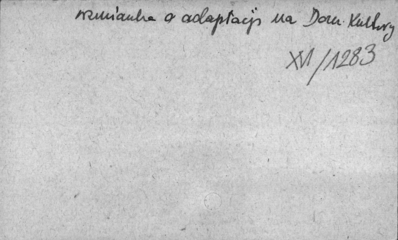 wzmianka o adaptacji na Dom Kultury
XVI/1283